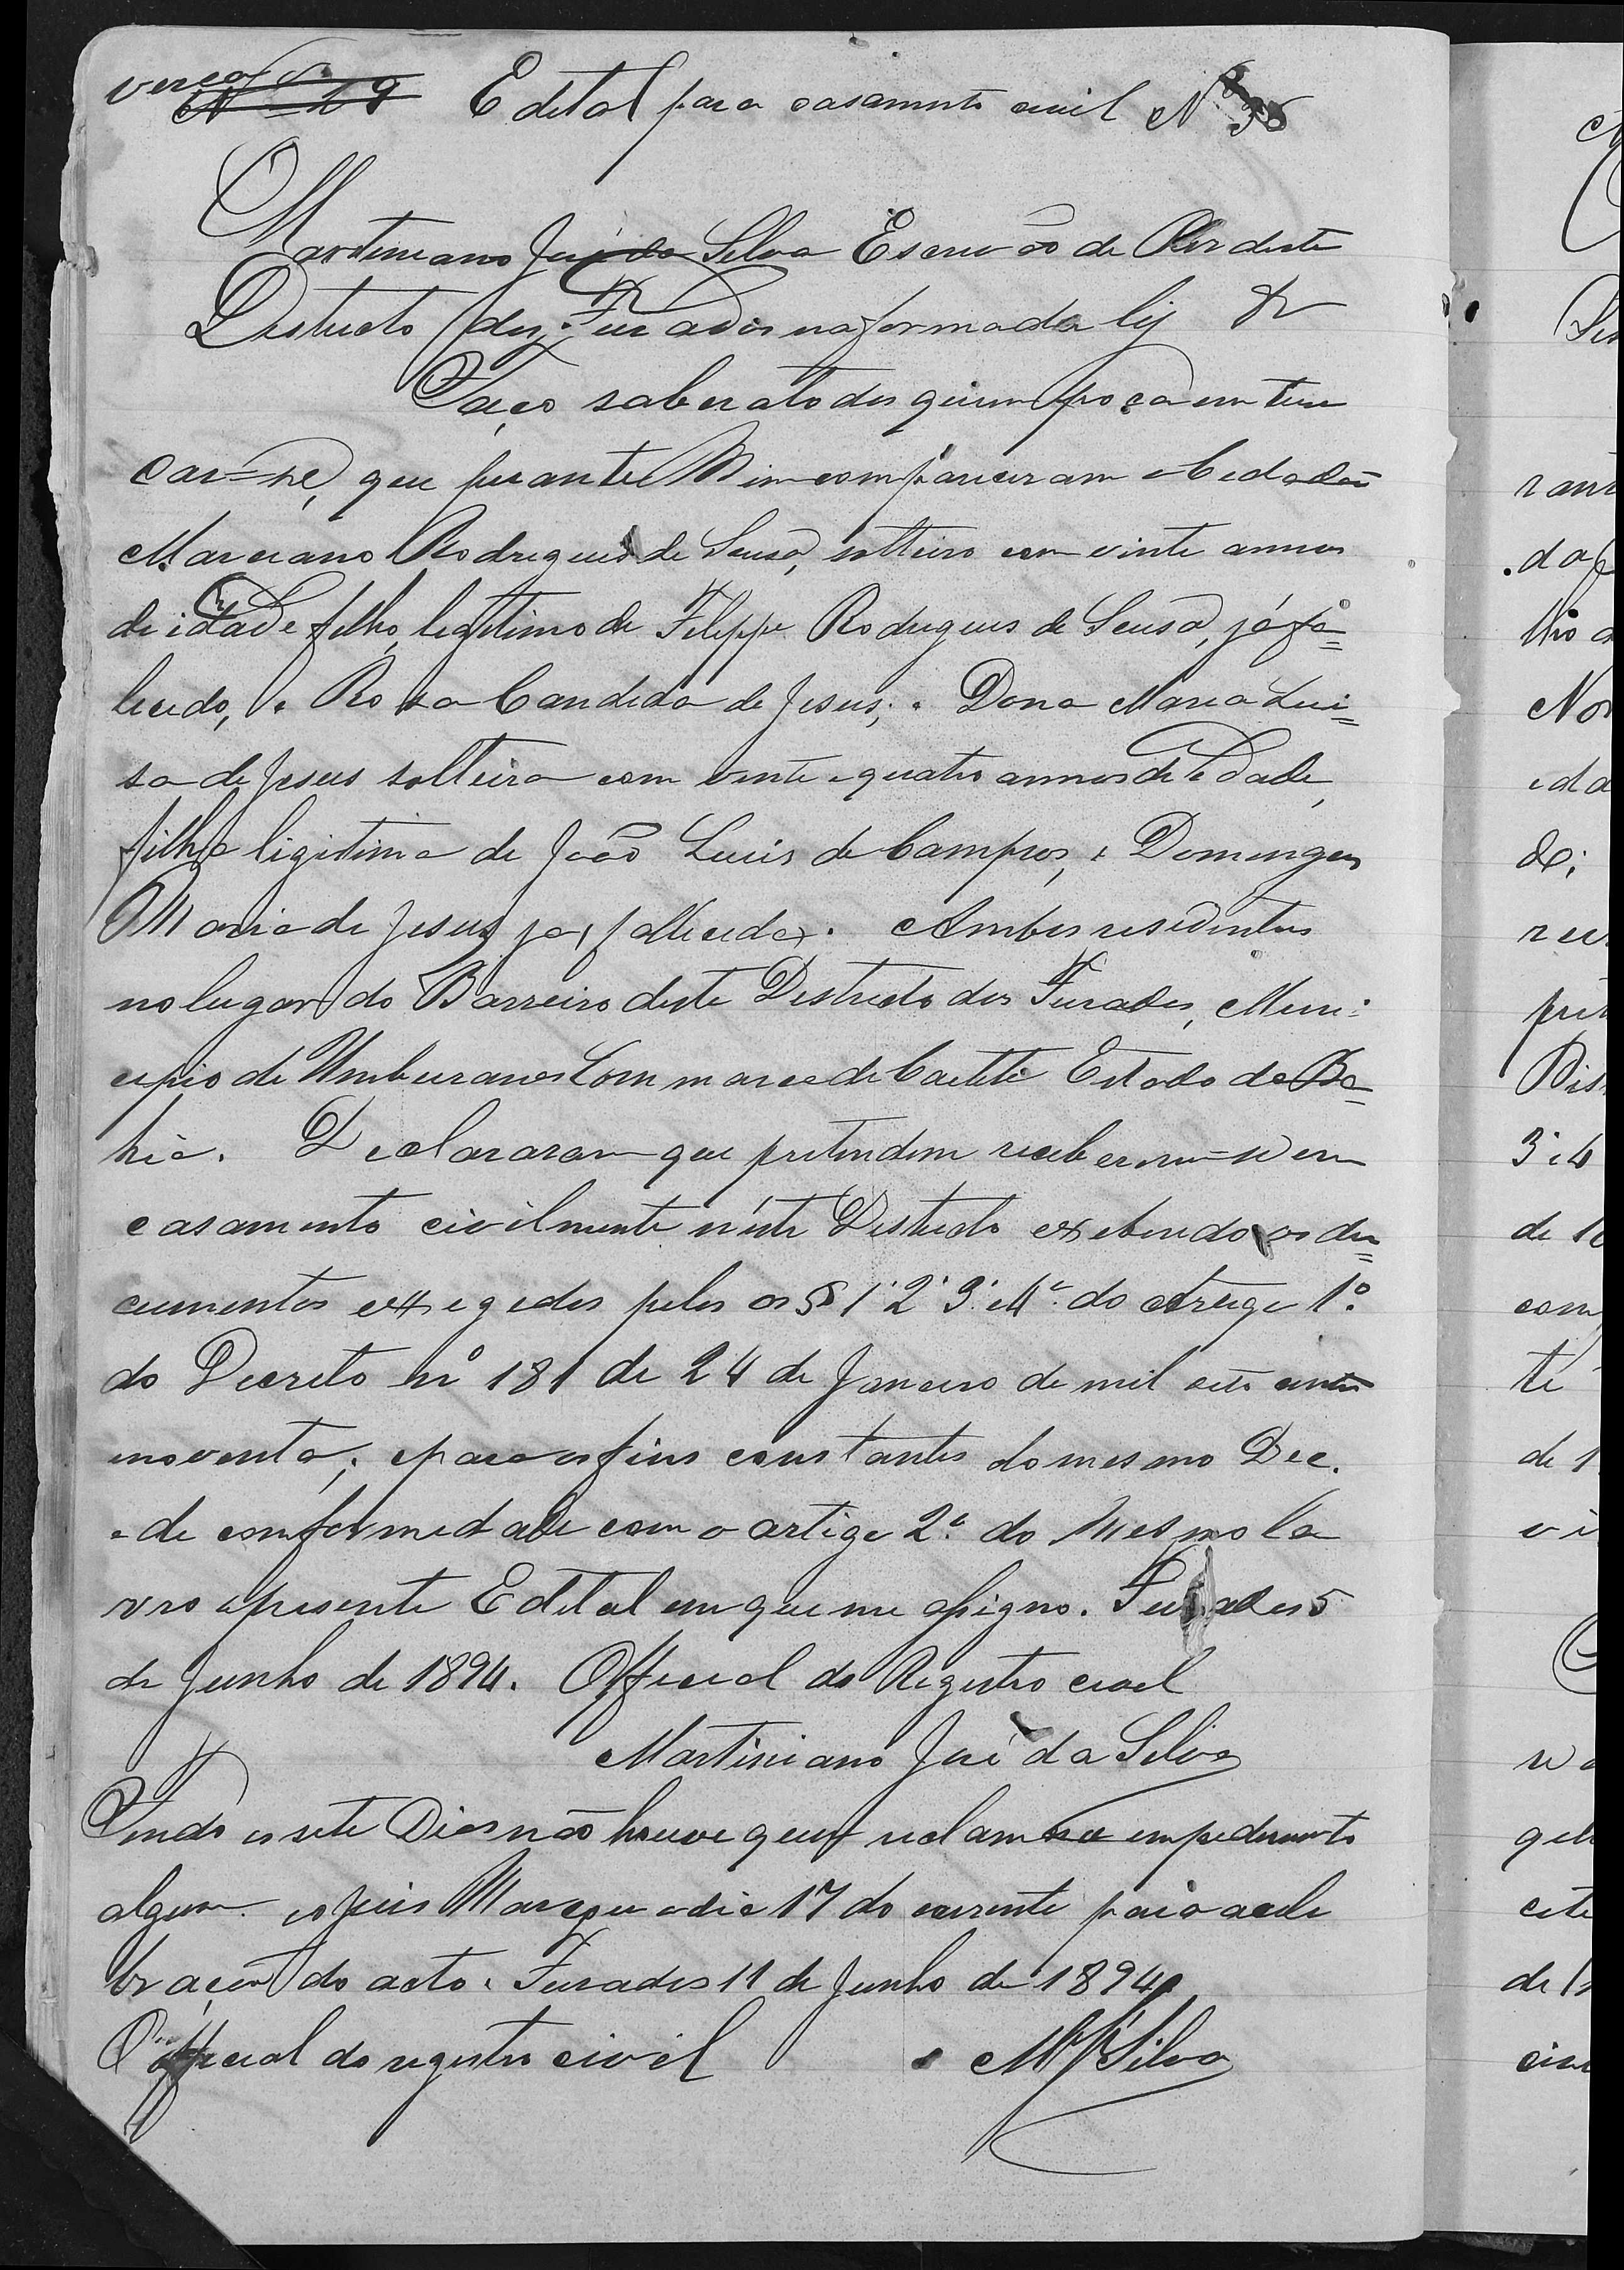 Edital para casamento civil N 36
Martiniano José da Silva Escrivão de Paz deste
Destricto dos Furados na forma da lej &
Faço saber a todos quem poça emtere
çar=se, que perante Mim compareceram o Cidadão
Marciano Rodrigues de Sousa, solteiro com vinte annos
de idade filho legitimo de Filippe Rodrigues de Sousa, já fa=
lecido, e Rosa Candida de Jesus; e Dona Maria Lui=
sa de Jesus solteira com vinte e quatro annos de Edade,
filha ligitima de João Luis de Campos, e Domingas
Maria de Jesus já fallecida. Ambos residentes
no lugar do Barreiro deste Destricto dos Furados, Muni=
cipio de Umburanas Commarca de Caiteté Estado da Ba=
hia. Declararam que pretendem receberem-se em
casamento civilmente n'este Destricto exebindo os du=
cumentos exsegidos pelos os §§ 1º 2º 3º e 4º do artigo 1º.
do Decreto nº 181 de 24 de Janeiro de mil oito centos
e noventa; e para os fins constantes do mesmo Dec.
e de comformidade com o artigo 2º. do Mesmo la
vro o presente Edital em que me asigno. Furados 5
de Junho de 1894. Official do Registro civel
Martiniano José da Silva
Findo os sete Dias não houve quem reclamase empedimento
algum. o Juis Marcou o dia 17 do corrente para a cele
bração do acto. Furados 11 de Junho de 1894
Official do registro civil M J Silva